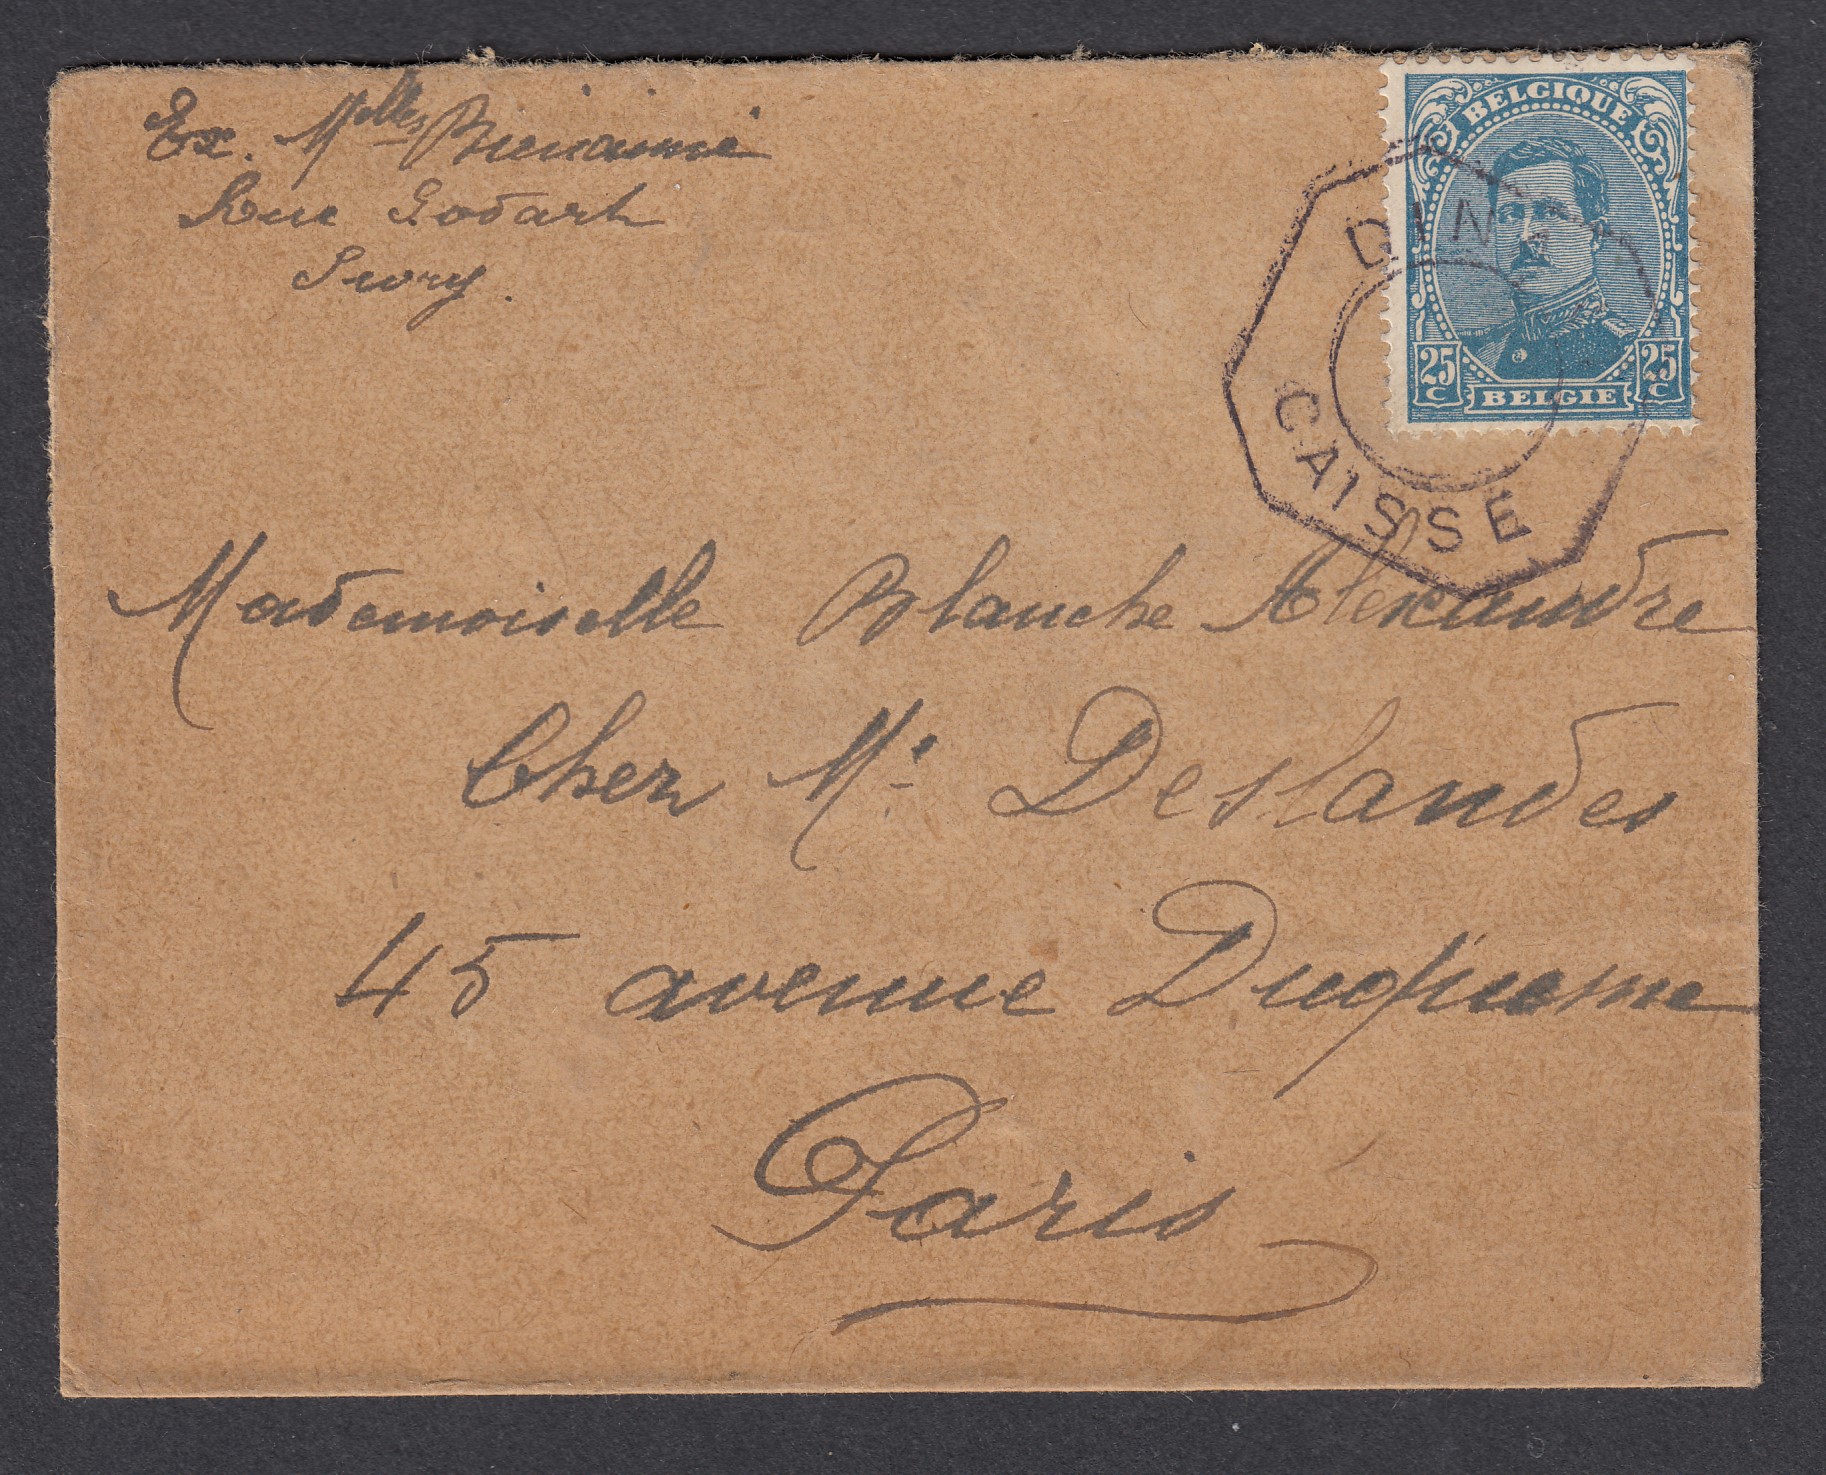 Ex. Melles Bienaimé
Rue Godart
Sivry.
BELGIQUE
25 C
25 C
BELGIE
DIN
CAISSE
Mademoiselle Blanche Alexandre
Chez Mr Deslandes
45 avenue Duquesne
Paris